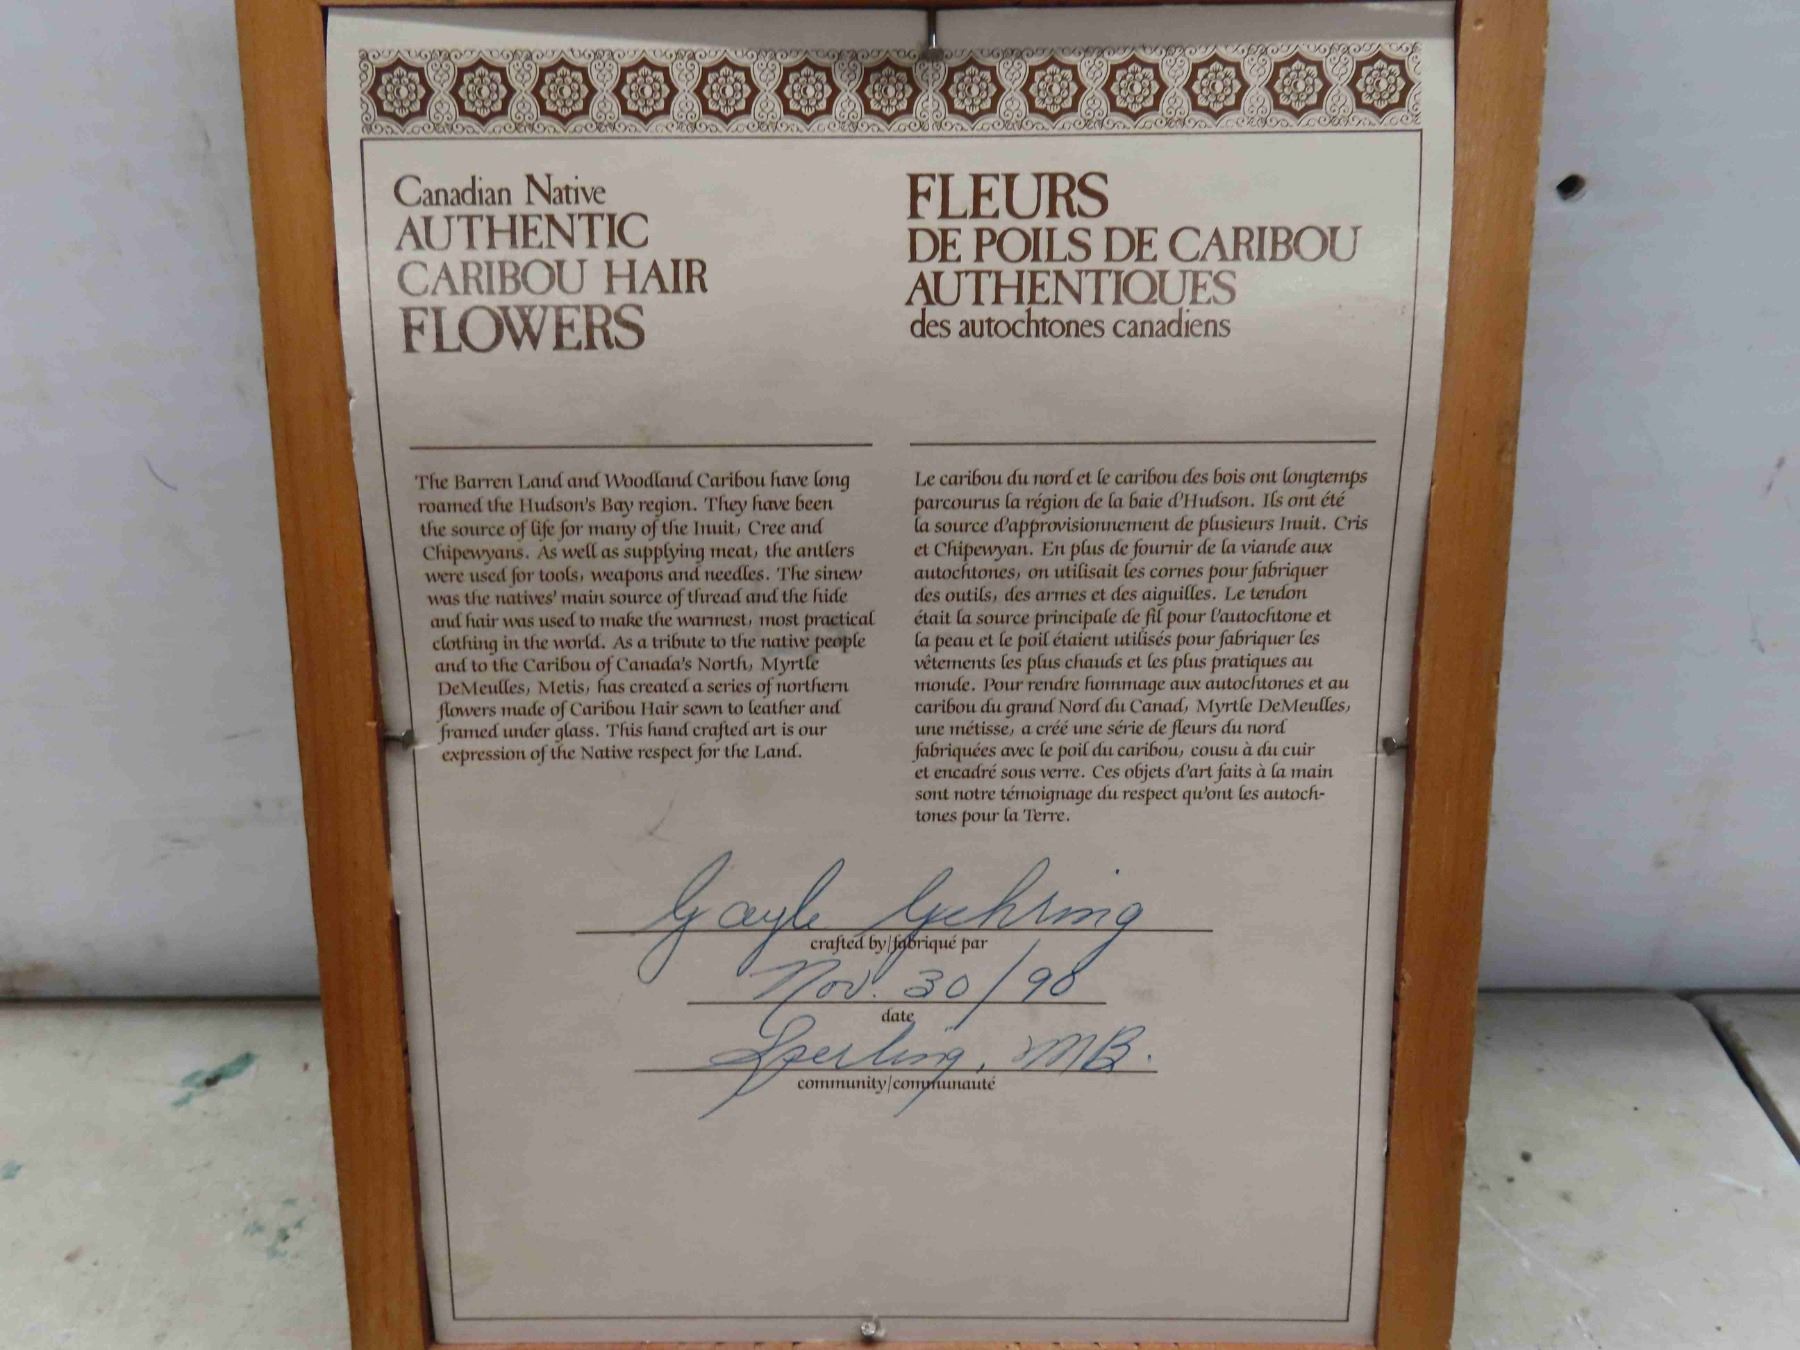 Canadian Native
AUTHENTIC
CARIBOU HAIR
FLOWERS
The Barren Land and Woodland Caribou have long
roamed the Hudson's Bay region. They have been
the source of life for many of the Inuit, Cree and
Chipewyans. As well as supplying meat, the antlers
were used for tools, weapons and needles. The sinew
was the natives' main source of thread and the hide
and hair was used to make the warmest, most practical
clothing in the world. As a tribute to the native people
and to the Caribou of Canada's North, Myrtle
DeMeulles, Metis, has created a series of northern
flowers made of Caribou Hair sewn to leather and
framed under glass. This hand crafted art is our
expression of the Native respect for the Land.
FLEURS
DE POILS DE CARIBOU
AUTHENTIQUES
des autochtones canadiens
Le caribou du nord et le caribou des bois ont longtemps
parcourus la région de la baie d'Hudson. Ils ont été
la source d'approvisionnement de plusieurs Inuit. Cris
et Chipewyan. En plus de fournir de la viande aux
autochtones, on utilisait les cornes pour fabriquer
des outils, des armes et des aiguilles. Le tendon
était la source principale de fil pour l'autochtone et
la peau et le poil étaient utilisés pour fabriquer les
vêtements les plus chauds et les plus pratiques au
monde. Pour rendre hommage aux autochtones et au
caribou du grand Nord du Canad, Myrtle DeMeulles,
une métisse, a créé une série de fleurs du nord
fabriquées avec le poil du caribou, cousu à du cuir
et encadré sous verre. Ces objets d'art faits à la main
sont notre témoignage du respect qu'ont les autoch-
tones pour la Terre.
Gayle Gehring
crafted by/fabriqué par
Nov. 30/90
date
Sperling, MB.
community/communauté